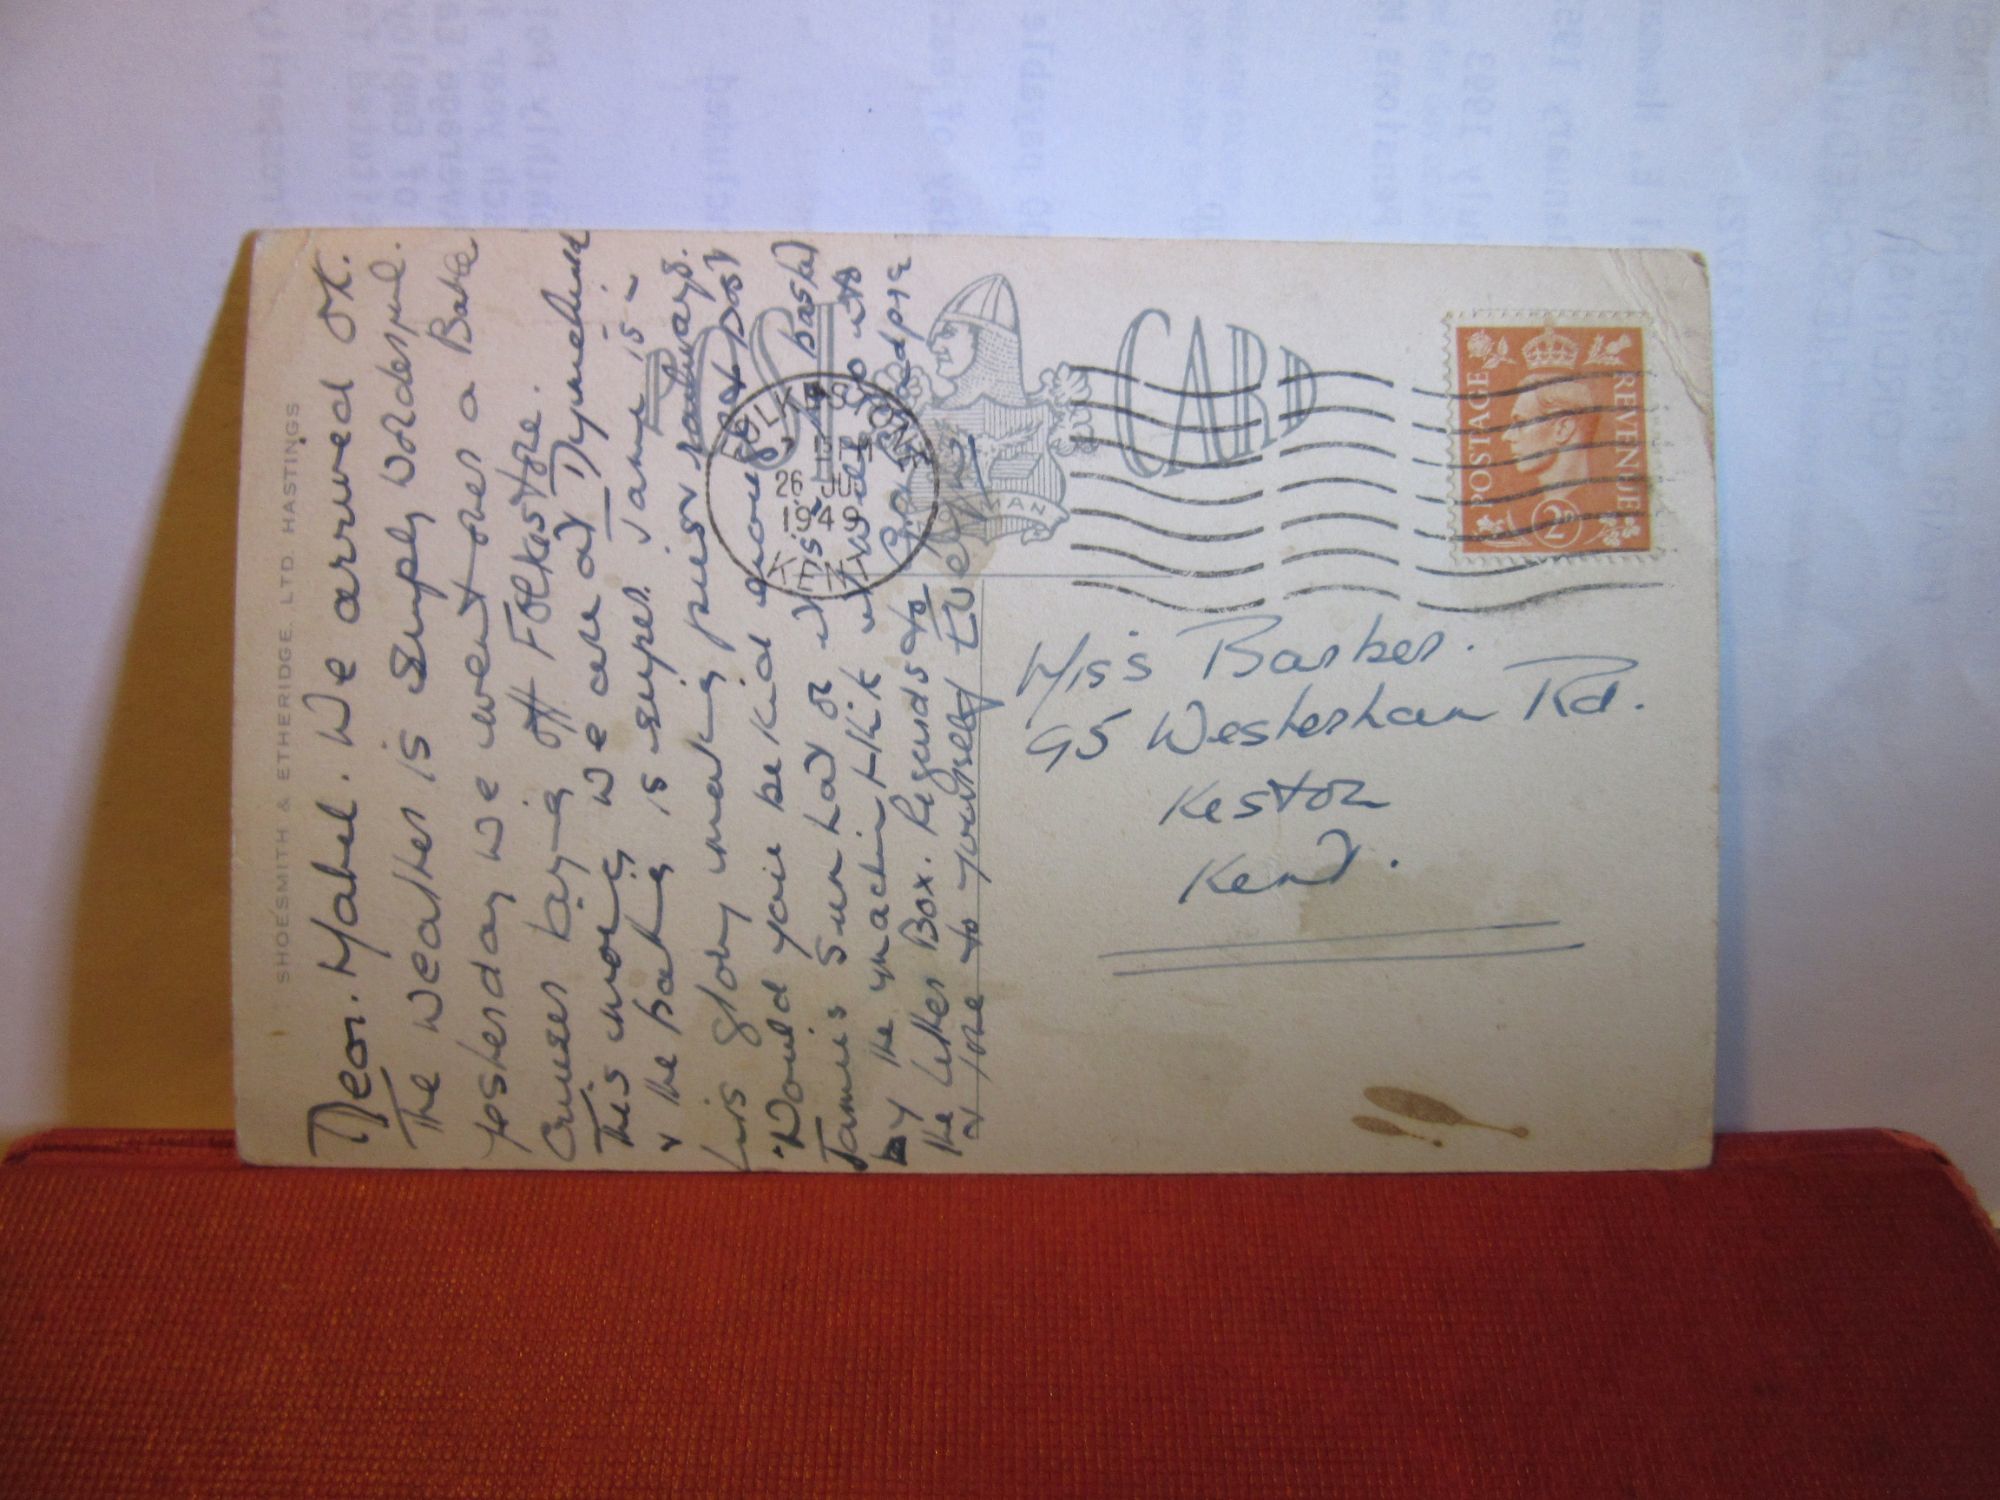 SHOESMITH & ETHERIDGE, LTD. HASTINGS
POST CARD
NORMAN
FOLKESTONE
KENT
26 JLY
1949
POSTAGE REVENUE
2D
Dear. Mabel. We arrived OK.
The weather is simply wonderful.
Yesterday we went over a Battle
Cruiser laying off Folkestone.
This morning we are at Dymchurch
& the bathing is super. Jamie is
his glory making pies & railways.
Would you be kind enough to post
Jamie's Sun hat or it is in the basket
by the machine I think it will go into
the letter Box. Regards to Bob and pig
& love to yourself
Miss Barber.
95 Westerham Rd.
Keston
Kent.